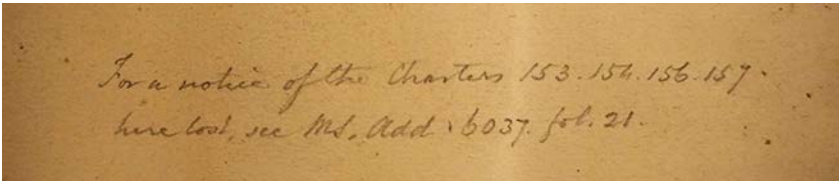 For a notice of the Charters 153. 154. 156. 157.
here lost, see MS. Add. 6037. fol. 21.